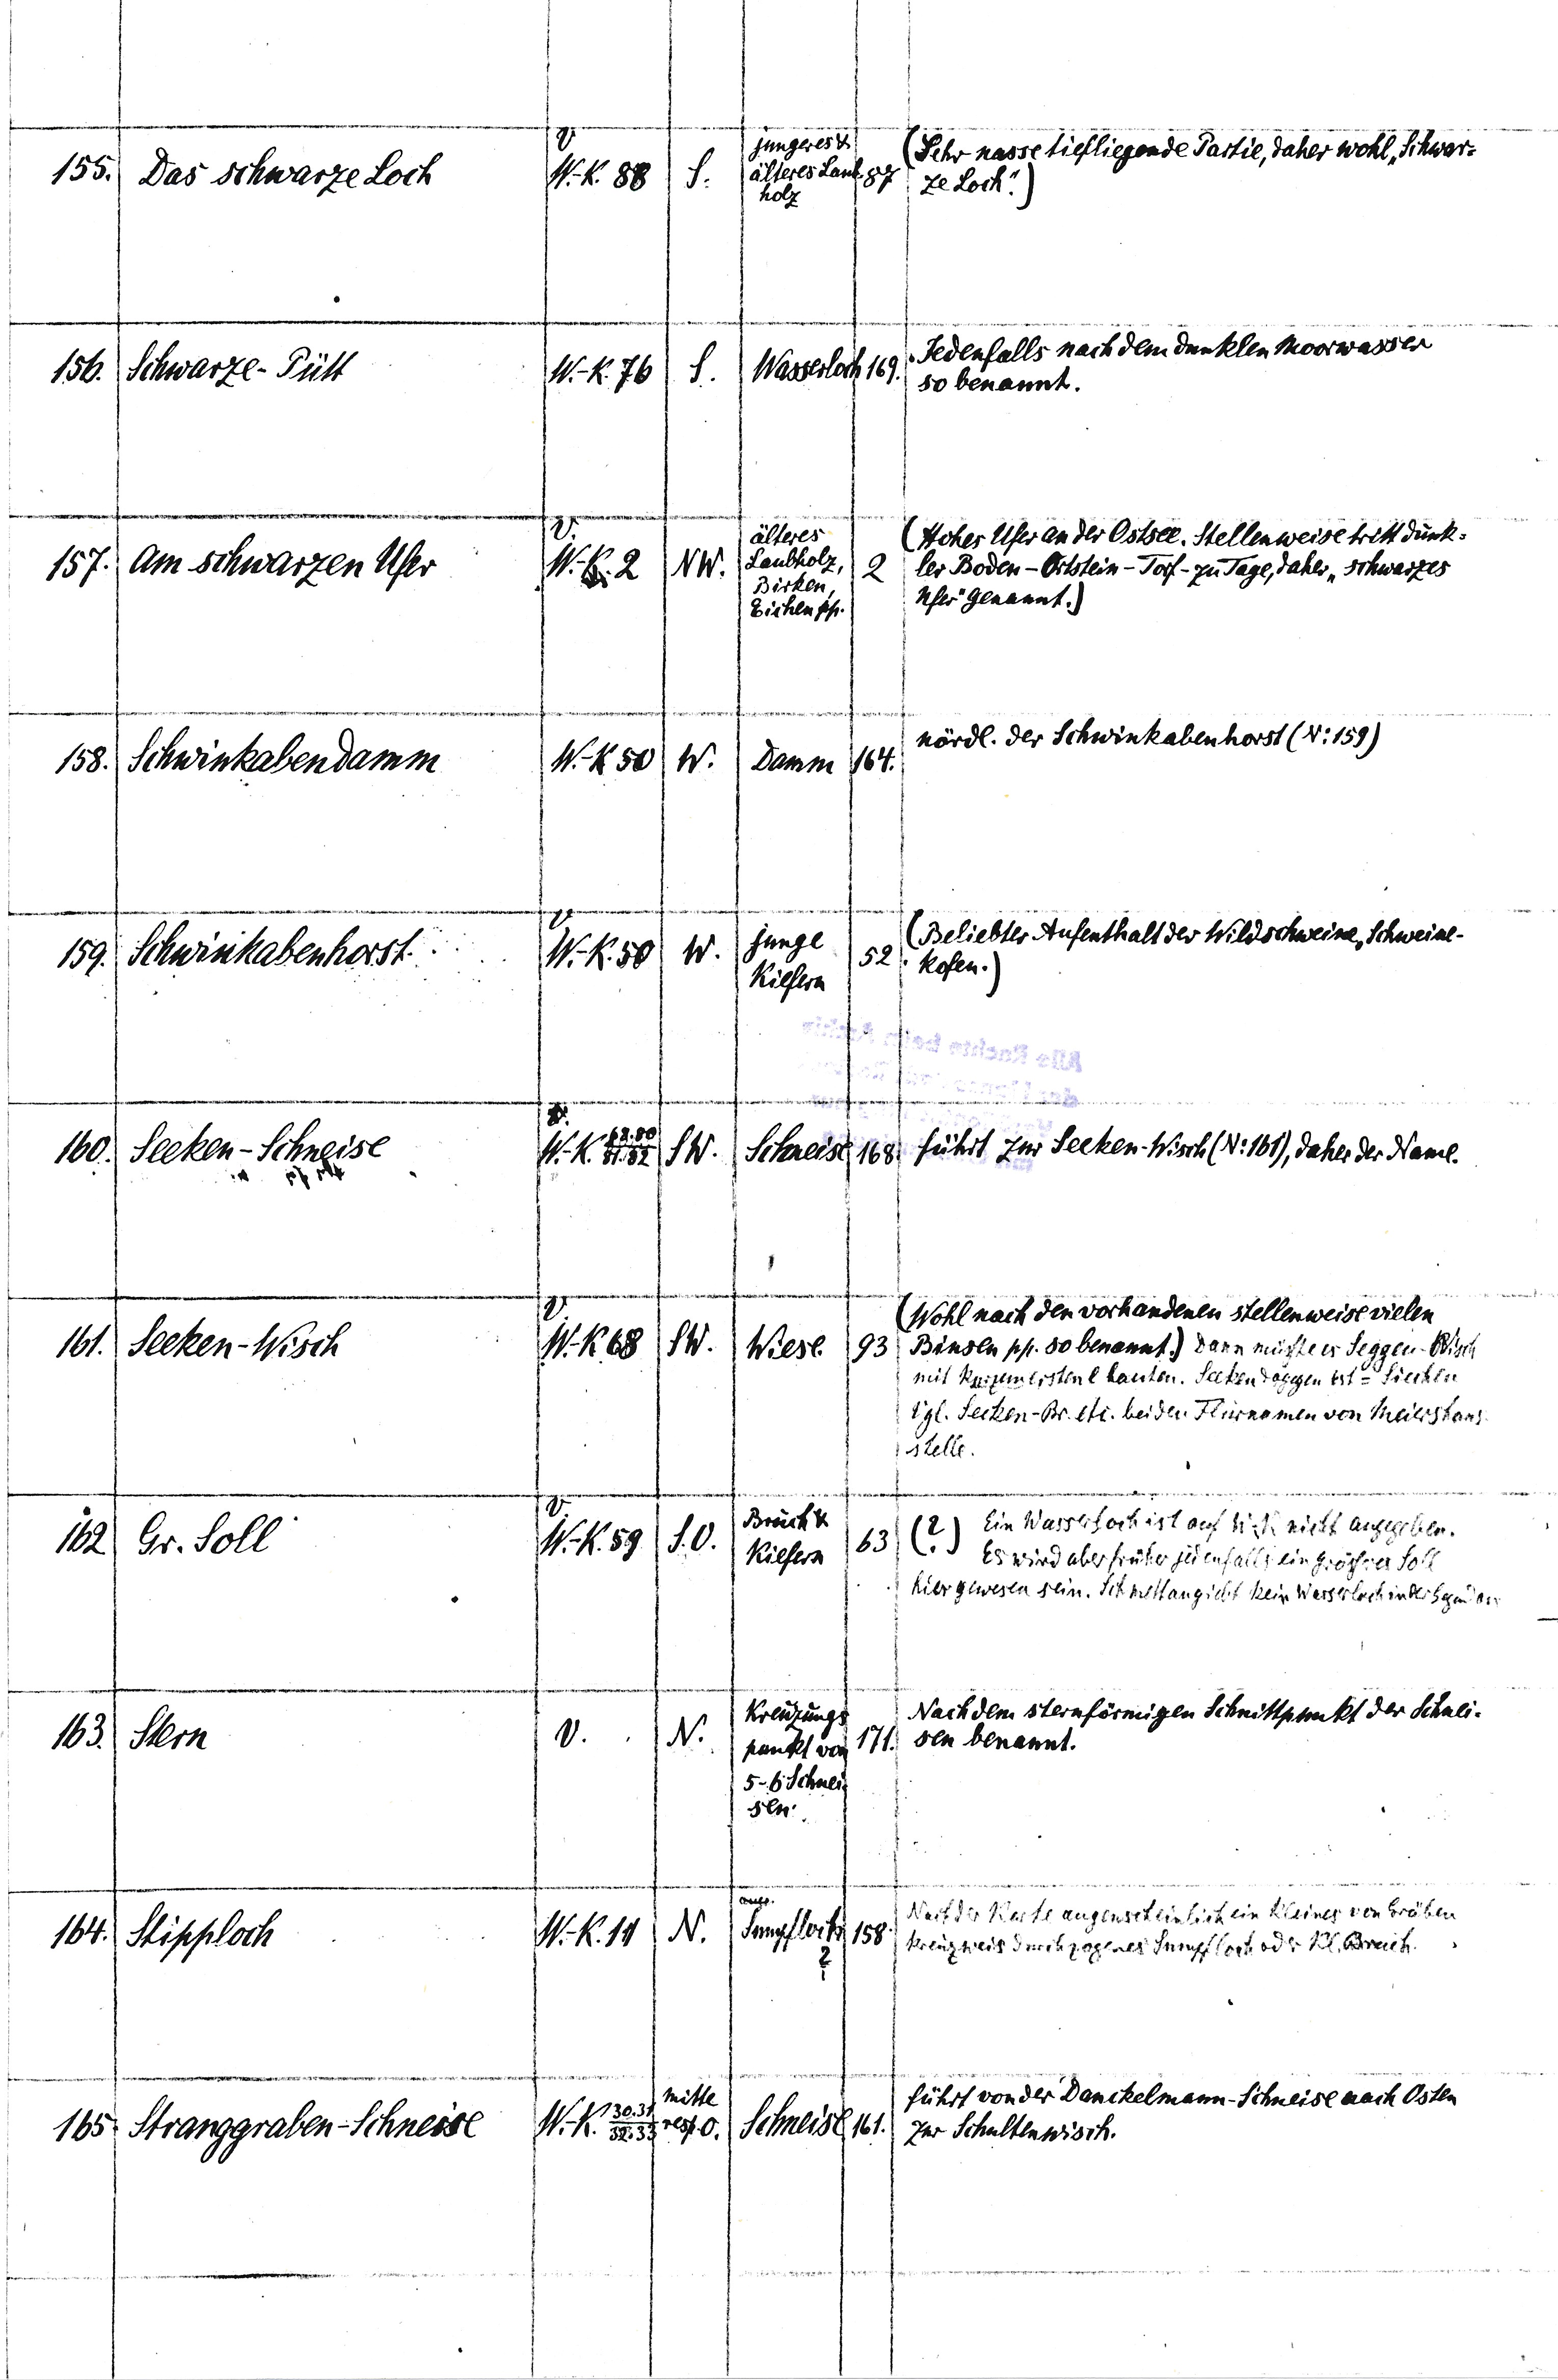 155. Das schwarze Loch V W.-K. 88 S. jungeres & älteres Laub- holz 87 (Sehr nasse tiefliegende Partie, daher wohl „Schwar-
ze Loch".)
156. Schwarze-Pütt W.-K. 76 S. Wasserloch 169. Jedenfalls nach dem dunklen Moorwasser
so benannt.
157. Am schwarzen Ufer V. W.-K. 2 NW. älteres Laubholz, Birken, Eichen pp. 2 (Hohes Ufer an der Ostsee. Stellenweise tritt dunk-
ler Boden - Ortstein - Torf - zu Tage, daher „schwarzes
Ufer" genannt.)
158. Schwinkabendamm W.-K 50 W. Damm 164. nördl. der Schwinkabenhorst (N: 159)
159. Schwinkabenhorst V W.-K. 50 W. junge Kiefern 52 (Beliebter Aufenthalt der Wildschweine, Schweine-
kofen.)
160. Seeken-Schneise W.-K. 81.82 SW. Schneise 168. führt zur Seeken-Wisch (N: 161), daher der Name.
161. Seeken-Wisch V. W.-K 68 SW. Wiese 93 (Wohl nach den vorhandenen stellenweise vielen
Binsen pp. so benannt.) Dann müsste es Seggen-Wisch
mit lauten. Seeken ist =
Vgl. Seeken-Br. etc. bei den Flurnamen von
stelle.
162 Gr. Soll V. W.-K. 59 S.O. Bruch & Kiefern 63 (?) Ein Wasserloch ist auf W.-K. nicht angegeben.
Es wird aber früher jedenfalls ein grösseres Soll
hier gewesen sein. Schmettau giebt kein Wasserloch in der
163. Stern V. N. Kreuzungs punkt von 5-6 Schnei- sen. 171. Nach dem sternförmigen Schnittpunkt der Schnei-
sen benannt.
164. Stipploch W.-K. 14 N. Sumpfloch ? 158. Nach der Karte augenscheinlich ein kleines von Gräben
kreuzweis durchzogenes Sumpfloch oder Kl. Bruch.
165. Stranggraben-Schneise W.-K. 30.31 32.33 Mitte resp. O. Schneise 161. führt von der Danckelmann-Schneise nach Osten
zur Schultenwisch.